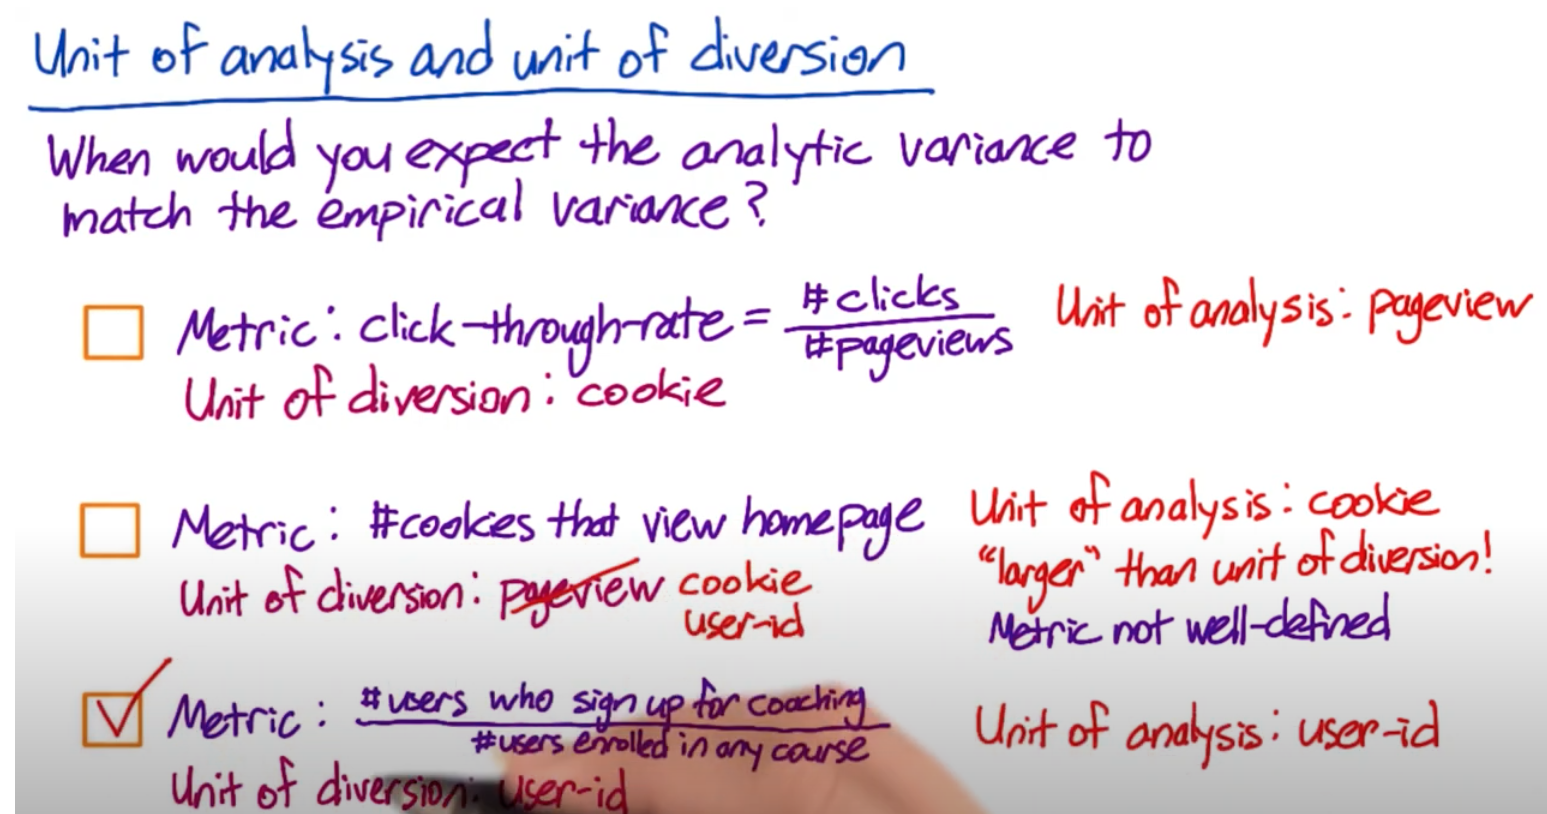 Unit of analysis and unit of diversion
When would you expect the analytic variance to
match the empirical variance?
Metric: click-through-rate = #clicks / #pageviews
Unit of analysis: pageview
Unit of diversion: cookie
Metric: #cookies that view homepage
Unit of analysis: cookie
"larger" than unit of diversion!
Unit of diversion: pageview cookie
user-id
Metric not well-defined
Metric: #users who sign up for coaching
#users enrolled in any course
Unit of analysis: user-id
Unit of diversion: user-id